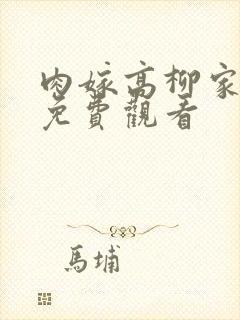 肉嫁高柳家
免費觀看
馬埔